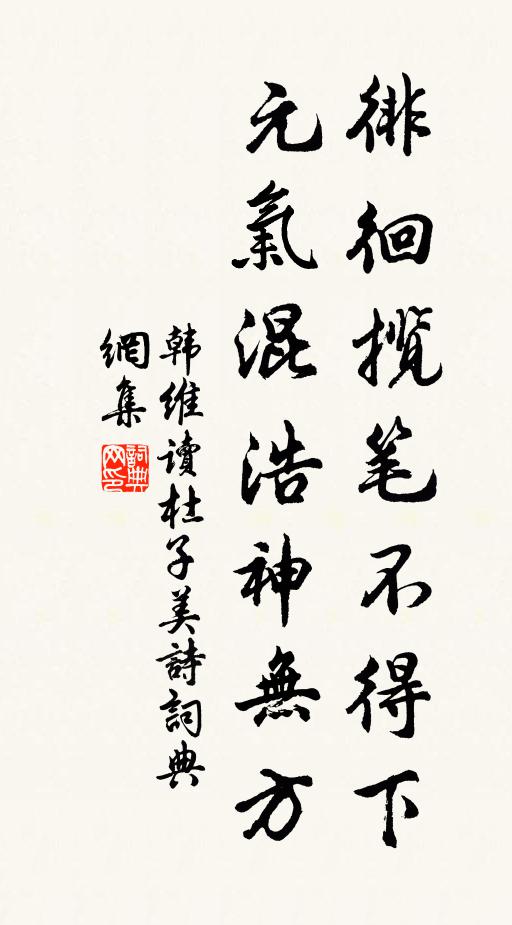 徘徊揽笔不得下
元氣混浩神無方
韩維讀杜子美詩詞典
網集
詞典
网印